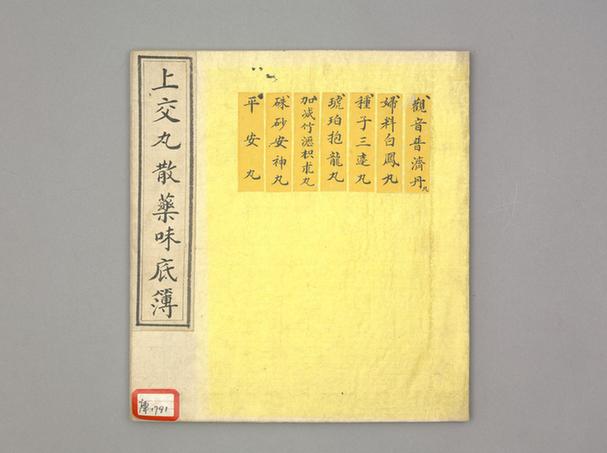 上交丸散藥味底簿
觀音普濟丹丸
婦科白鳳丸
種子三達丸
琥珀抱龍丸
加減竹瀝枳朮丸
硃砂安神丸
平安丸
1791